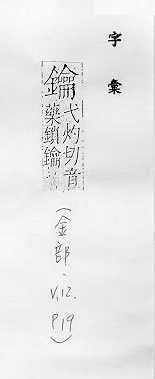 字彙
鑰
弋灼切音
藥鎖鑰
(金部.
V.12.
P.19)